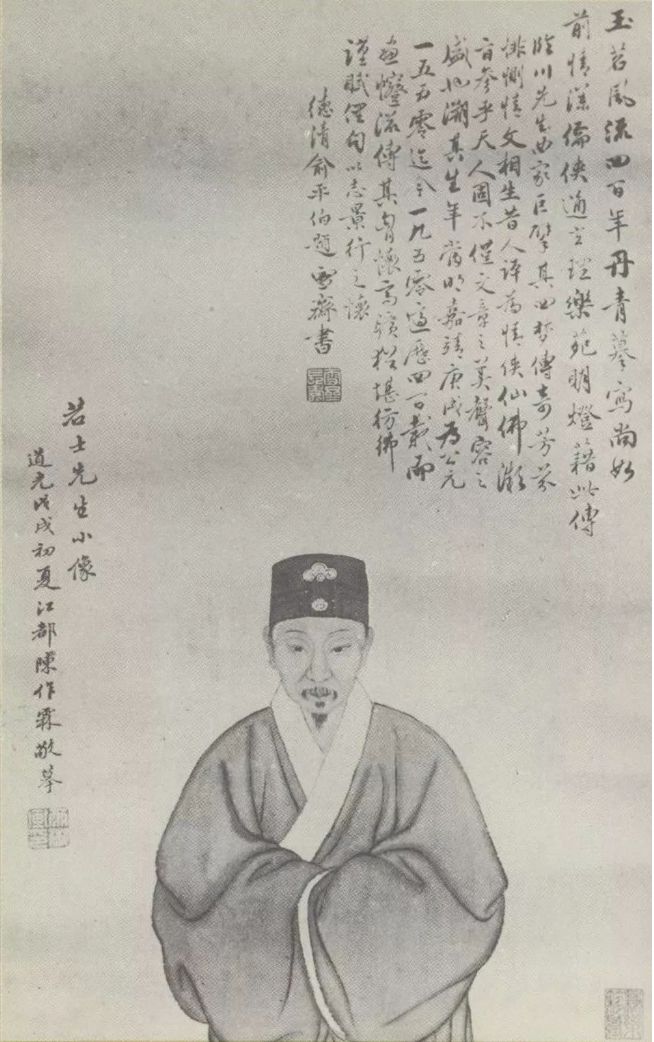 玉茗風流四百年丹青摹寫尚如
前情深儒俠通玄理樂苑明燈藉此傳
臨川先生曲家巨擘其四夢傳奇芳芬
悱惻情文相生昔人評為情俠仙佛微
旨參乎天人固不僅文章之美聲容之
盛也溯其生年當明嘉靖庚戌為公元
一五五零迄今一九五零適歷四百載而
流傳其胸懷高曠猶堪彷彿
謹賦俚句以志景行之懷
德清俞平伯題雪齋書
若士先生小像
道光戊戌初夏江都陳作霖敬摹